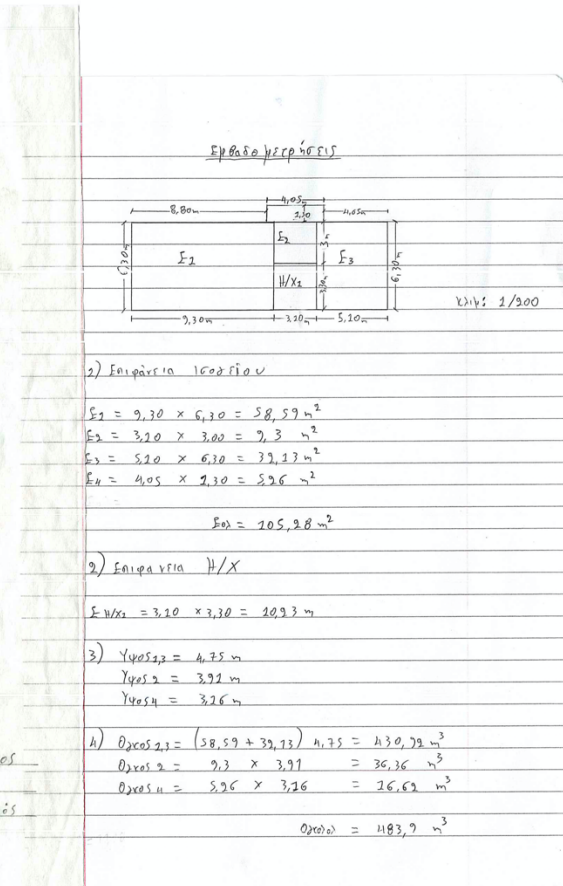 Εμβαδομετρήσεις
4,05m
8,80m
1,30
4,65m
6,30m
Ε1
Ε2
3m
Ε3
6,30m
Η/Χ1
3,30m
9,30m
3,10m
5,10m
κλιμ: 1/200
1) Επιφάνεια Ισογείου
Ε1 = 9,30 × 6,30 = 58,59 m²
Ε2 = 3,10 × 3,00 = 9,3 m²
Ε3 = 5,10 × 6,30 = 32,13 m²
Ε4 = 4,05 × 1,30 = 5,26 m²
Εολ = 105,28 m²
2) Επιφανεια Η/Χ
Ε Η/Χ1 = 3,10 × 3,30 = 10,23 m
3) Υψος1,3 = 4,75 m
Υψος 2 = 3,91 m
Υψος4 = 3,16 m
4) Ογκος1,3 = (58,59 + 32,13) 4,75 = 430,92 m³
Ογκος 2 = 9,3 × 3,91 = 36,36 m³
Ογκος 4 = 5,26 × 3,16 = 16,62 m³
Ογκοςολ = 483,9 m³
ος
ός